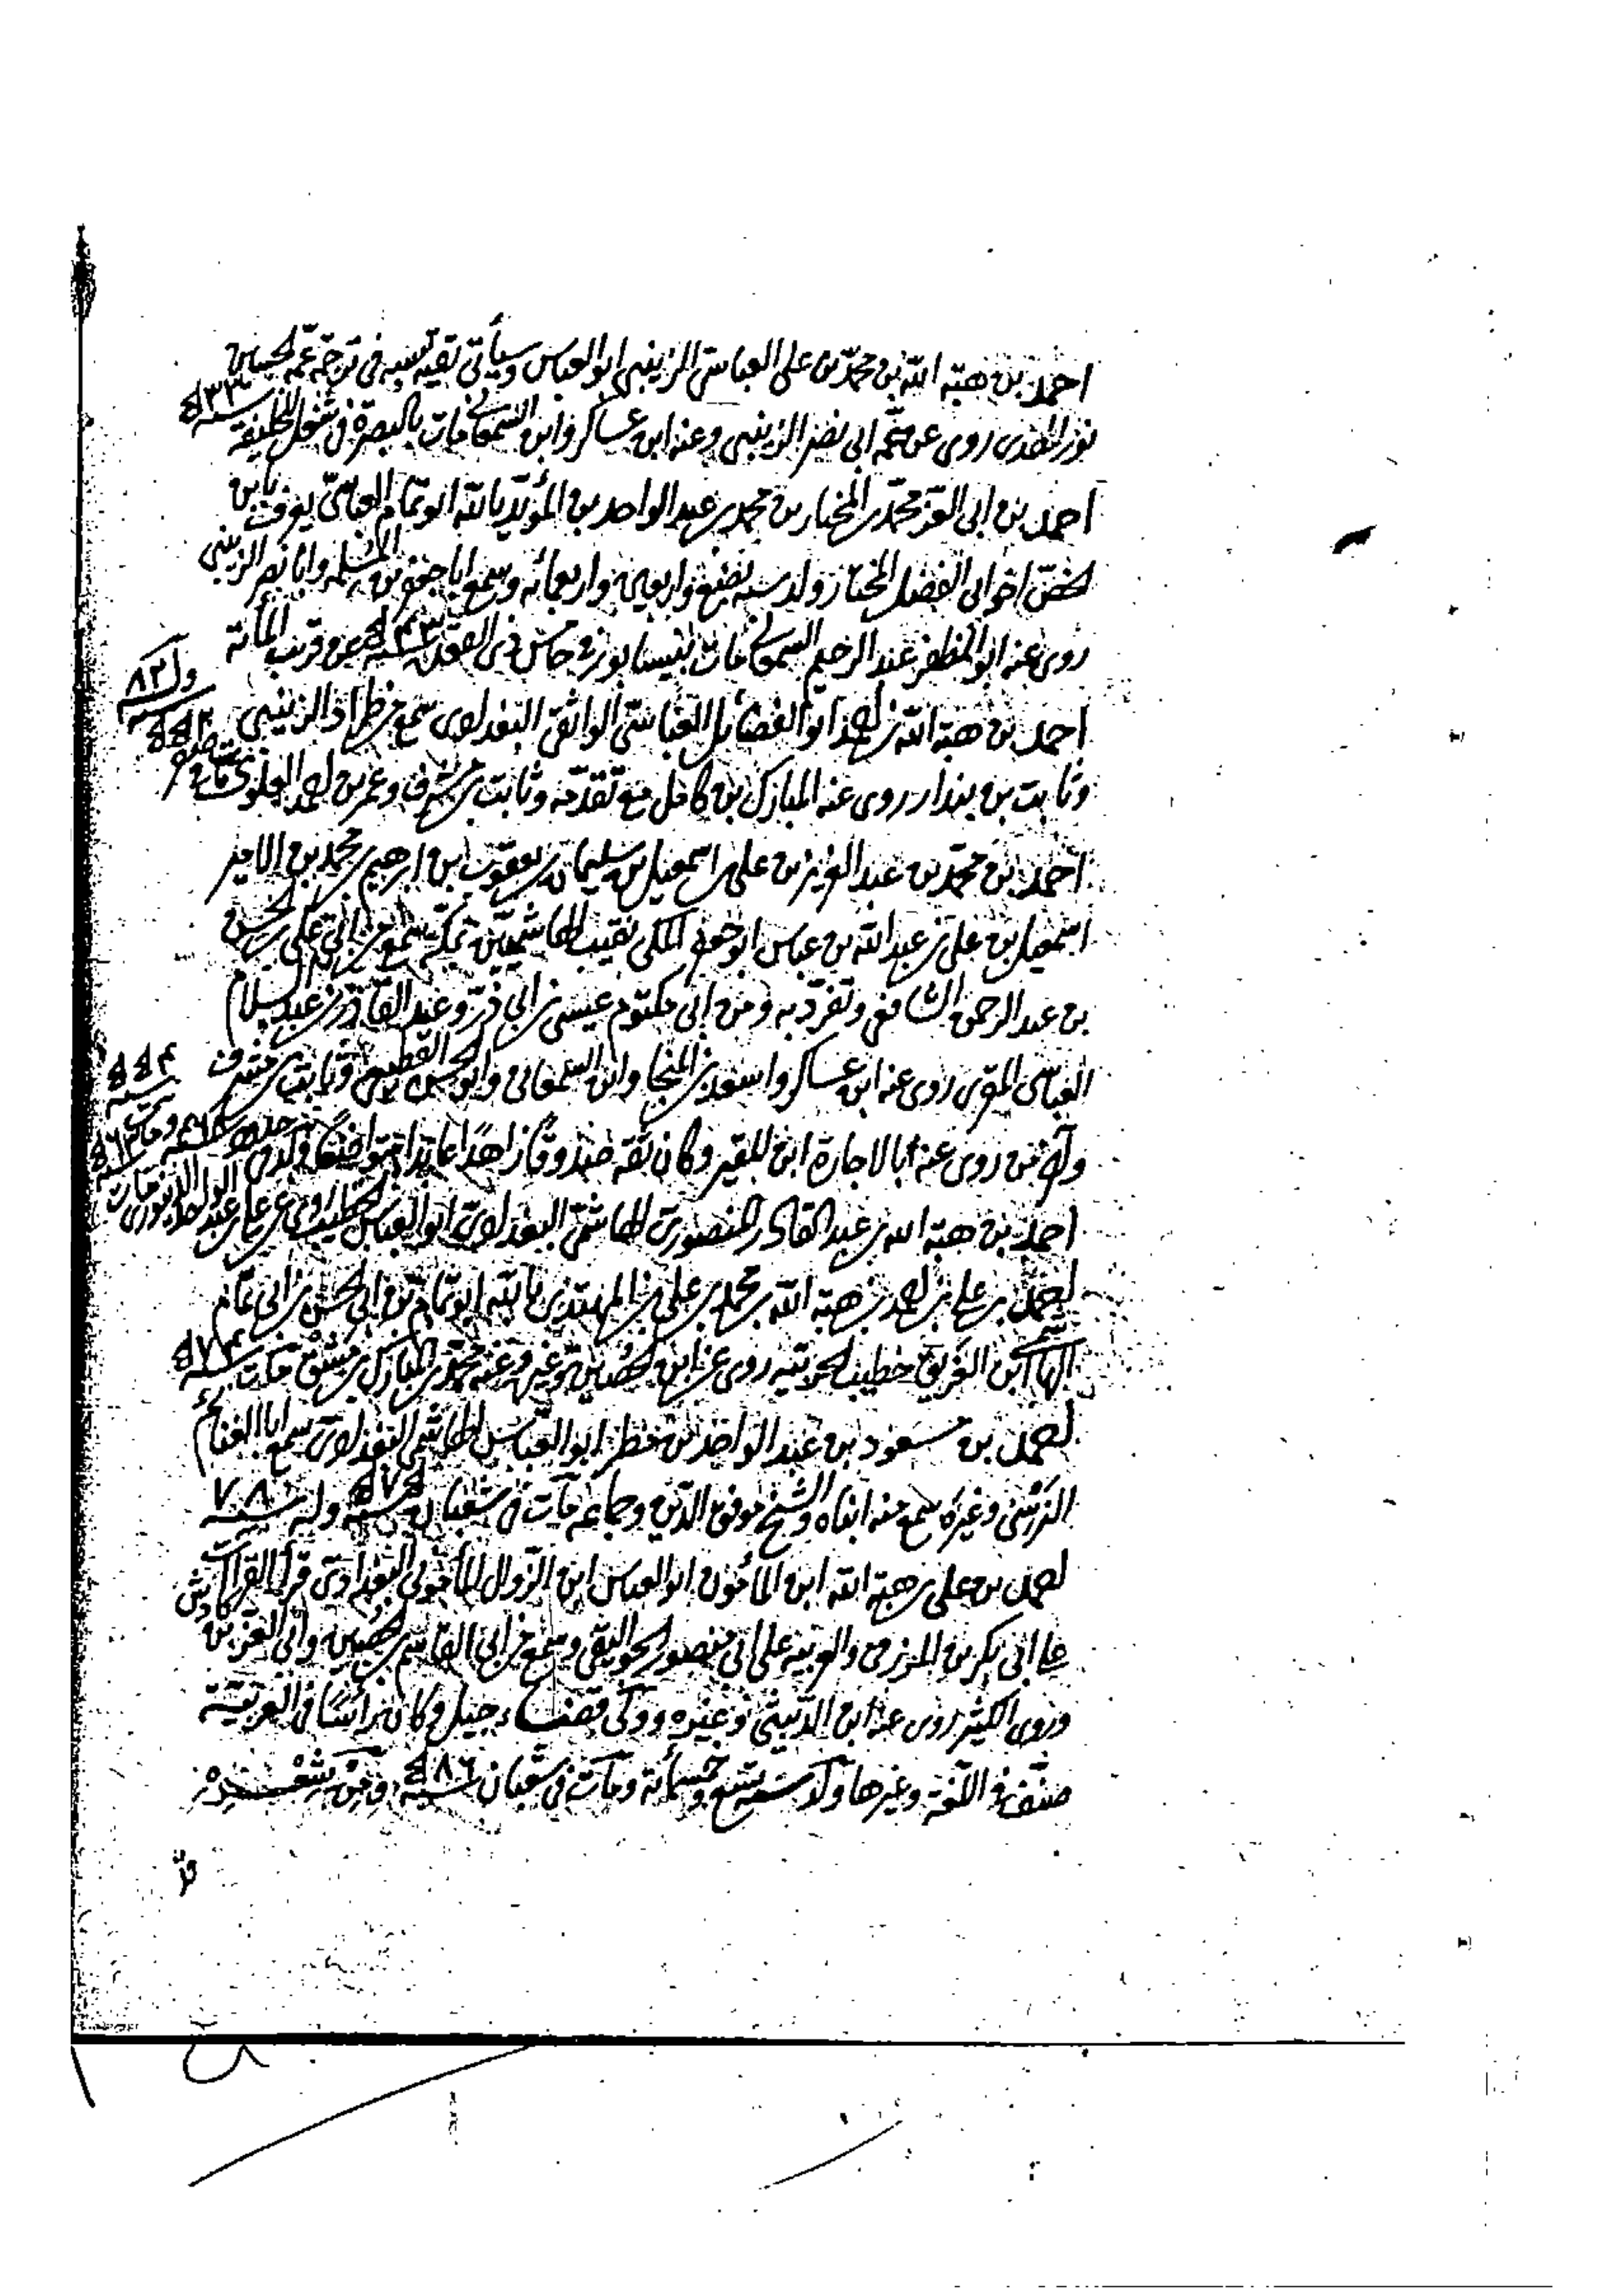 احمد بن هبة الله بن محمد بن على العباسى الزينبى ابو العباس وسيأتى بقية نسبه فى ترجمة عمه الحسين
نور الهدى روى عن عمه ابى نصر الزينبى وعنه ابن عساكر وابن السمعانى مات بالبصرة فى شغل الخليفة سنة ٥٣٣
احمد بن ابى العز محمد بن المختار بن محمد بن عبد الواحد بن المؤيد بالله ابو تمام العباسى يعرف بابن
الخص اخو ابى الفضل المختار ولد سنة بضع واربعين واربعمائه وسمع ابا جعفر بن المسلمة وابا نصر الزينبى
روى عنه ابو المظفر عبد الرحيم السمعانى مات بنيسابور فى خامس ذى القعدة سنة ٥٤٣ عن قريب المائة
احمد بن هبة الله بن احمد ابو الفضائل العباسى الواثقى البغدادى سمع طراد الزينبى
وثابت بن بندار روى عنه المبارك بن كامل مع تقدمه وثابت بن مشرف وعمر بن احمد العلوى مات فى صفر سنة ٥٥٢ ولد ٨٣
احمد بن محمد بن عبد العزيز بن على بن اسمعيل بن سليمان بن يعقوب ابن ابرهيم بن محمد بن الامير
اسمعيل بن على بن عبد الله بن عباس ابو جعفر المكى نقيب الهاشميين بمكة سمع من ابى على الحسن
بن عبد الرحمن الشافعى وتفرد به ومن ابى مكتوم عيسى بن ابى ذر وعبد القادر بن عبد السلام
العباسى المقرى روى عنه ابن عساكر واسعد بن المنجا وابن السمعانى وابو الحسن القطيعى وثابت بن مشرف
وآخر من روى عنه بالاجازة ابن المقير وكان ثقة صدوقا زاهدا عابدا متواضعا ولد سنة ٤٦٨ ومات سنة ٥٥٤
احمد بن هبة الله بن عبد القادر المنصورى الهاشمى البغدادى ابو العباس الخطيب روى عن على بن عبد الواحد الدينورى مات سنة ٥٦٣
احمد بن على بن احمد بن هبة الله بن محمد بن على بن المهتدى بالله ابو تمام بن ابى الحسن بن ابى تمام
الهاشمى ابن الغريق خطيب الحربية روى عن ابن الحصين وغيره وعنه محمد بن المبارك بن مشق مات سنة ٥٧٤
احمد بن مسعود بن عبد الواحد بن مطر ابو العباس الهاشمى البغدادى سمع ابا الغنائم
النرسى وغيره سمع منه ابناه والشيخ موفق الدين وجماعة مات فى شعبان سنة ٥٧٥ وله سنة ٧٨
احمد بن على بن هبة الله ابن المأمون ابو العباس ابن الزوال المأمونى البغدادى قرأ القرآن
على ابى بكر بن المزرفى والعربية على ابى منصور الجواليقى وسمع من ابى القاسم بن الحصين وابى العز بن كادش
وروى الكثير روى عنه ابن الدبيثى وغيره وولى قضاء دجيل وكان رأسا فى العربية
صنف فى اللغة وغيرها ولد سنة تسع وخمسمائة ومات فى شعبان سنة ٥٨٦ ومن شعره